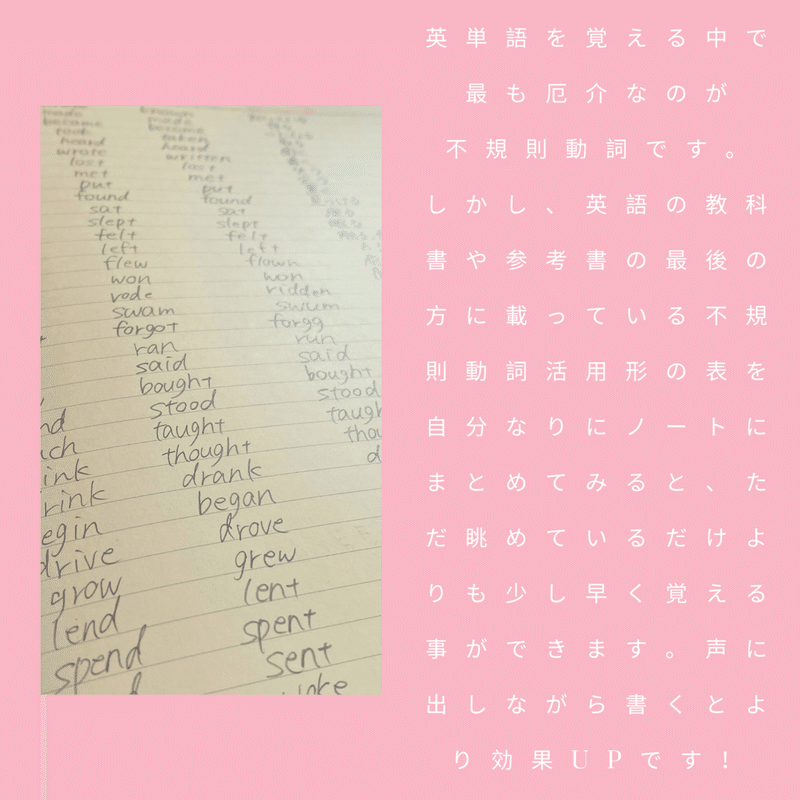 英単語を覚える中で
最も厄介なのが
不規則動詞です。
しかし、英語の教科
書や参考書の最後の
方に載っている不規
則動詞活用形の表を
自分なりにノートに
まとめてみると、た
だ眺めているだけよ
りも少し早く覚える
事ができます。声に
出しながら書くとよ
り効果UPです!
made made
became become
took taken
heard heard
wrote written
lost lost
met met
put put
found found
sat sat
slept slept
felt felt
left left
flew flown
won won
rode ridden
swam swum
forgot forgg
ran run
said said
bought bought
stood stood
taught
thought
drank
began
drive drove
grow grew
lend lent
spend spent
sent